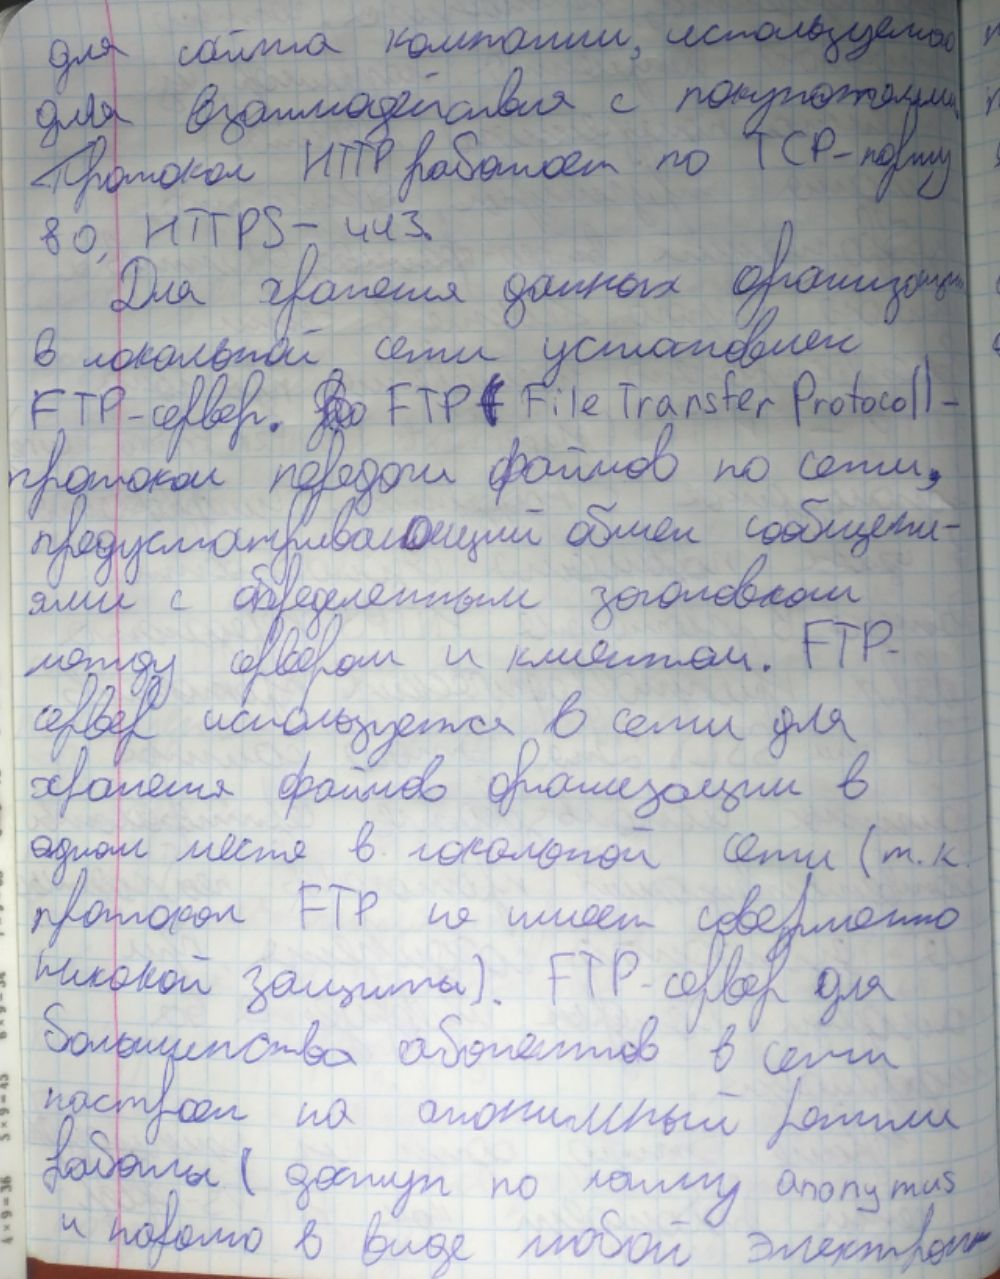 для сайта компании, используемого
для взаимодействия с покупателями.
Протокол HTTP работает по TCP-порту
80, HTTPS – 443.
Для хранения данных организации
в локальной сети установлен
FTP-сервер. FTP (File Transfer Protocol) –
протокол передачи файлов по сети,
предусматривающий обмен сообщени-
ями с определенным заголовком
между сервером и клиентом. FTP-
сервер используется в сети для
хранения файлов организации в
одном месте в локальной сети (т.к.
протокол FTP не имеет совершенно
никакой защиты). FTP-сервер для
большинства абонентов в сети
настроен на анонимный режим
работы (доступ по логину anonymus
и паролю в виде любой электрон-